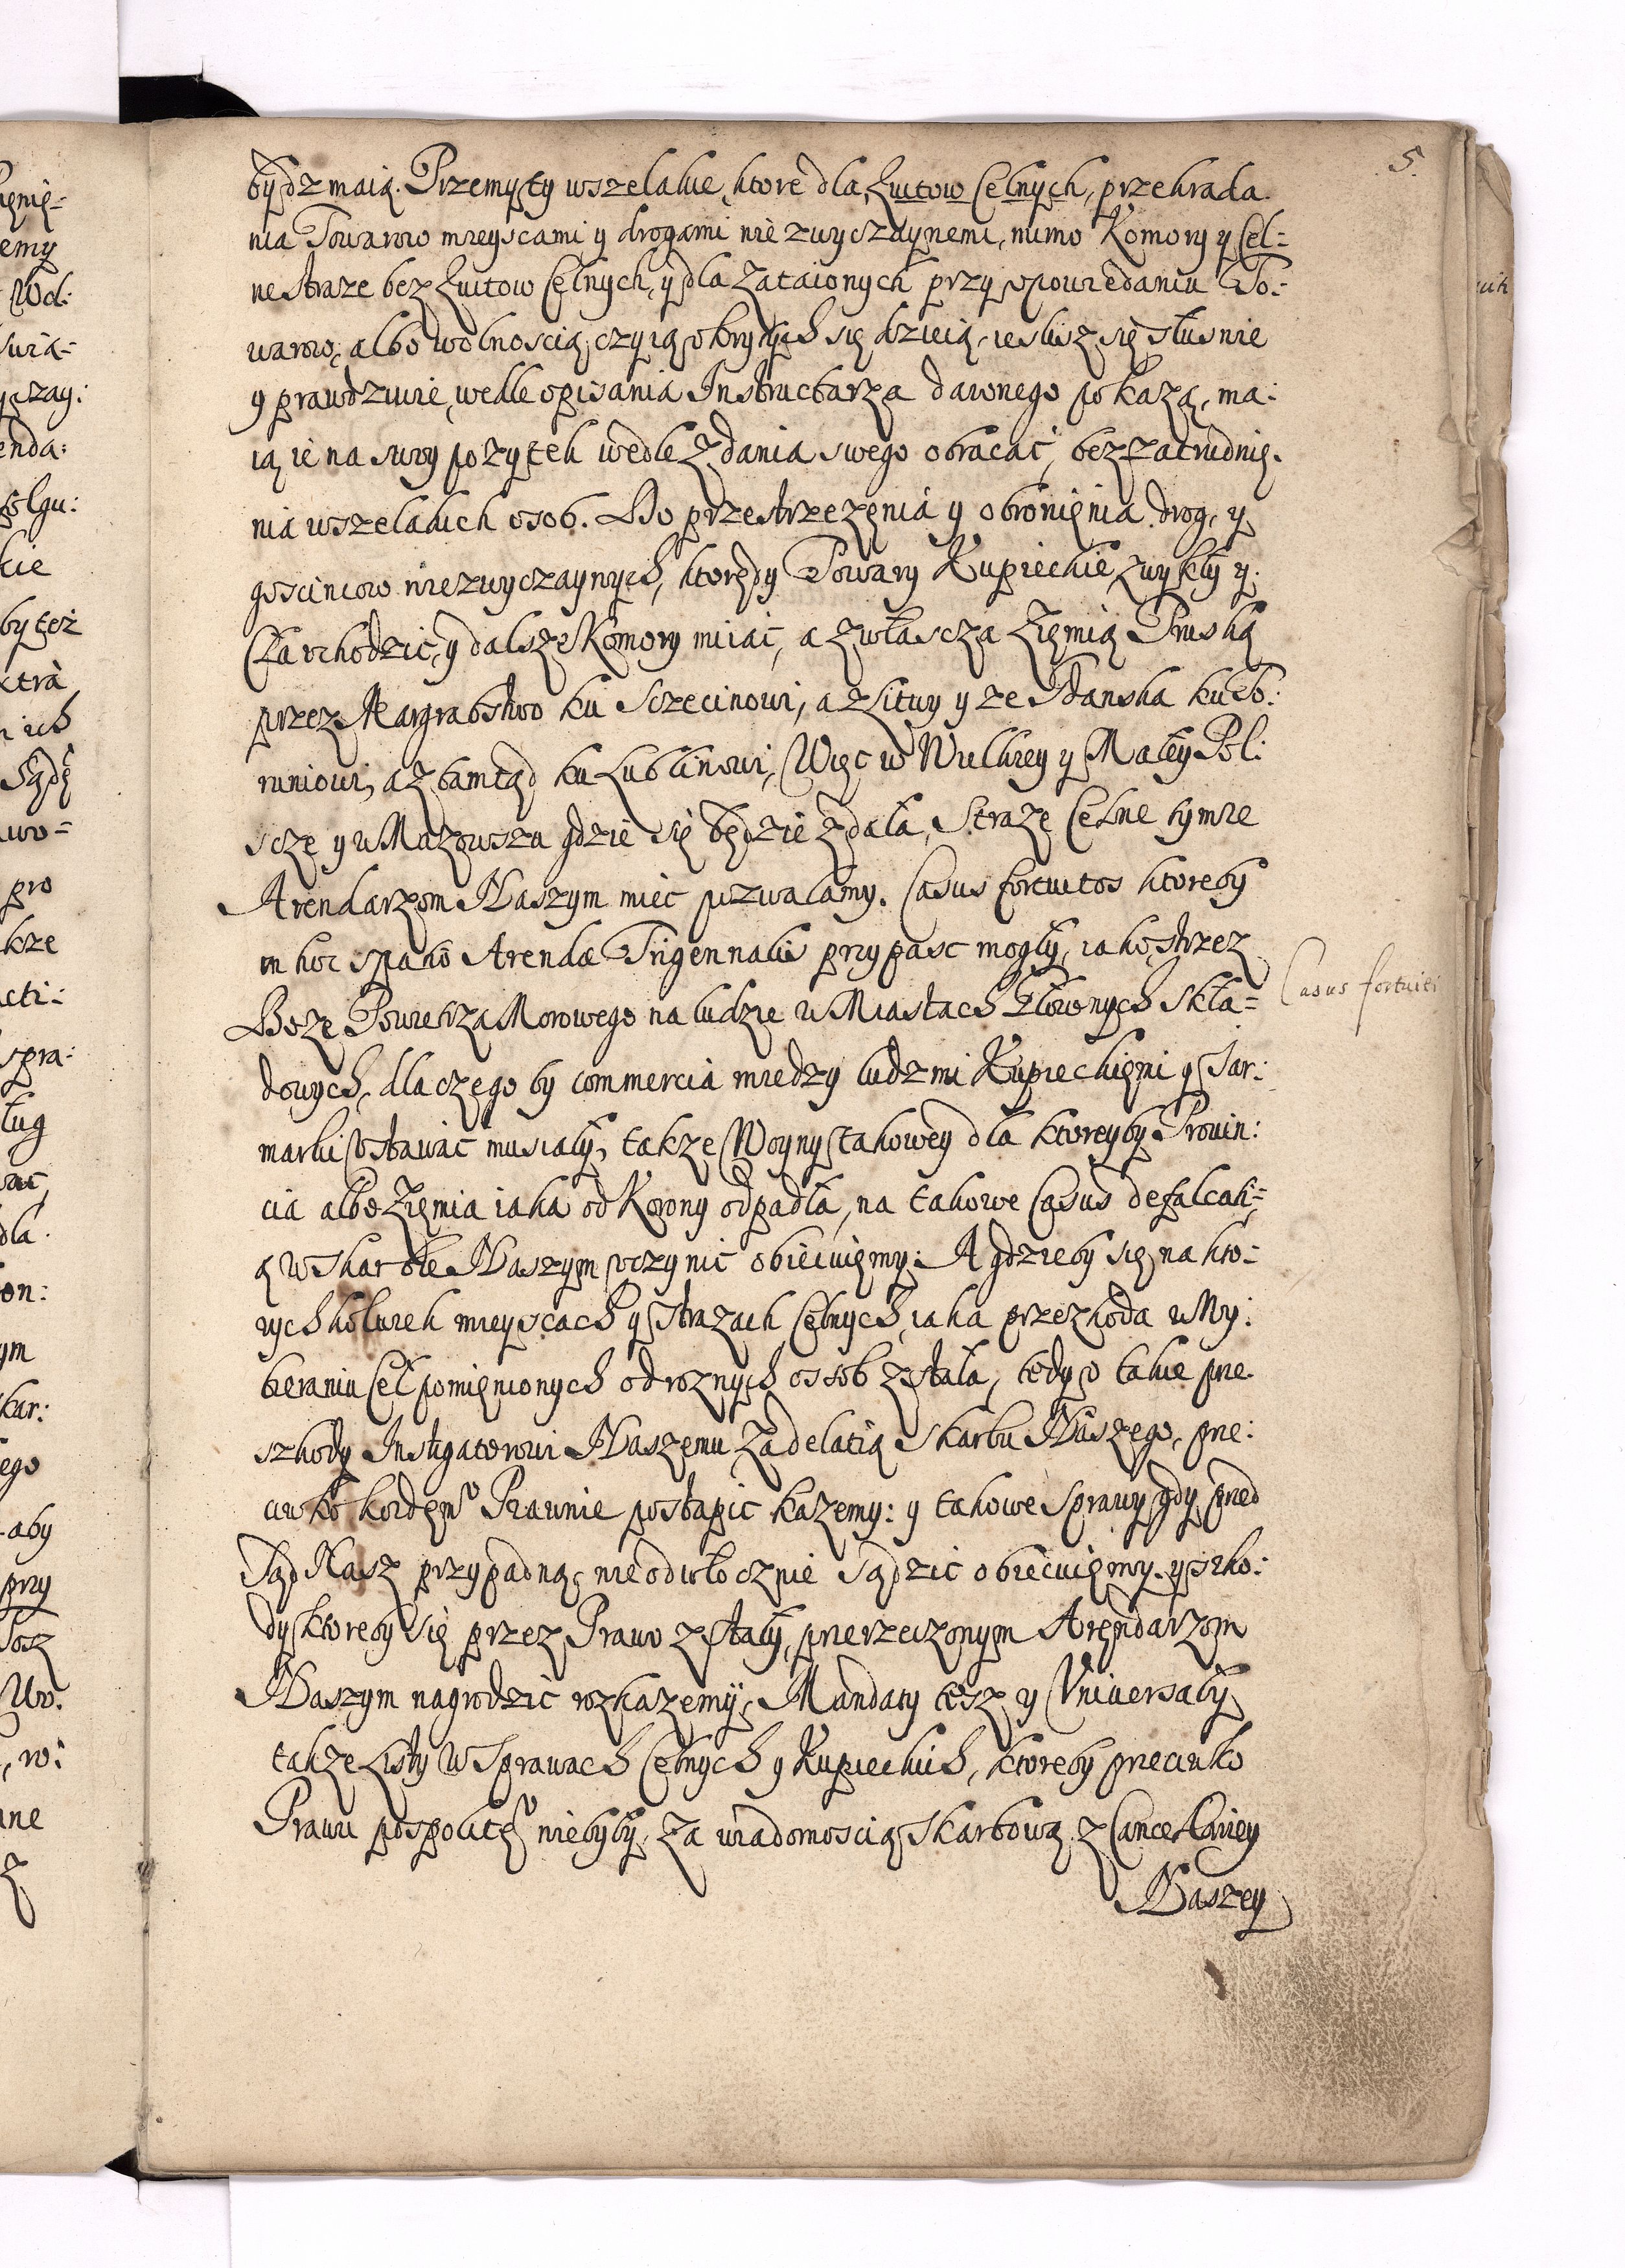 5.
bydz maią. Przemyty wszelakie, ktore dla kwitow Celnych, przekrada.
nia Towarow mieyscami y drogami nie zwyczaynemi, mimo Komory y Cel=
ne straze bez kwitow Celnych, y dla zataionych przy opowiedaniu To:
warow, albo wolnoscią czyią okrytych się dzieią, iesliz się słusnie
y prawdziwie, wedle opisania Instructarza dawnego pokazą, ma:
ią ie na swoy pozytek wedle zdania swego obracać, bez zatrudnię.
nia wszelakich osob. Do przestrzezenia y obronięnia drog, y
goscincow niezwyczaynych, ktorędy Towary Kupieckie zwykły y.
Cła vchodzić, y dalsze Komory miiać, a zwłascza Ziemią Pruską
przez Margrabstwo ku Sczecinowi, a z Litwy y ze Gdanska ku To:
runiowi, a z tamtąd ku Lublinowi, Więc w Wielkiey y Małey Pol:
scze y w Mazowszu gdzie się będzie zdała, Straze Celne tymze
Arendarzom Naszym mieć pozwalamy. Casus fortuitos ktoreby
in hoc spatio Arendæ Trigennalis przypasc mogły, iako strzez
Boze Powietrza Morowego na ludzie w Miastach Głownych Skła=
dowych, dla czego by commercia miedzy ludzmi Kupieckięmi y Jar:
marki vstawać musiały, takze Woyny takowey dla ktoreyby Provin:
cia albo Ziemia iaka od Korony odpadła, na takowe Casus defalcati=
ą w Skarbie Naszym vczynić obiecuięmy: A gdzieby się na kto=
rychkolwiek mieyscach y Strazach Celnych, iaka przezkoda w Wy:
bieraniu Ceł pomięnionych od roznych ossob zstała, tedy o takie prze.
szkody Instigatorowi Naszemu za delatią Skarbu Naszego, prze:
ciwko kozdęmu Prawnie postąpic kazemy: y takowe Sprawy gdy przed
Sąd Nasz przypadną, nieodwłocznie sądzić obiecuięmy. y szko:
dy ktoreby się przez Prawo zstały, przerzeczonym Arędarzom
Naszym nagrodzić rozkazemy, Mandaty tesz y Vniversały
takze Listy w Sprawach Celnych y Kupieckich, ktoreby przeciwko
Prawu pospolitęmu niebyły, za wiadomoscią Skarbową z Cancellariey
Naszey
Casus fortuiti